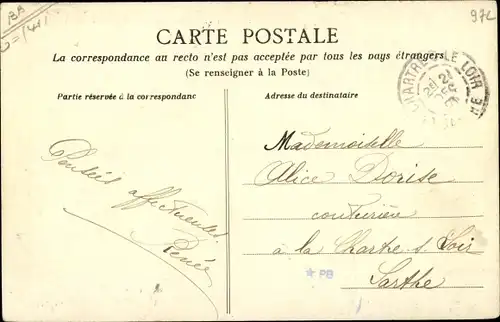 BB
97L
CARTE POSTALE
La correspondance au recto n'est pas acceptée par tous les pays étrangers
(Se renseigner à la Poste)
Partie réservée à la correspondanc
Adresse du destinataire
CHARTRE-S-LE LOIR
Pensées
affectueuses
Renée
Mademoiselle
Alice Dorise
couturière
à la Chartre s. Loir
Sarthe
* PB